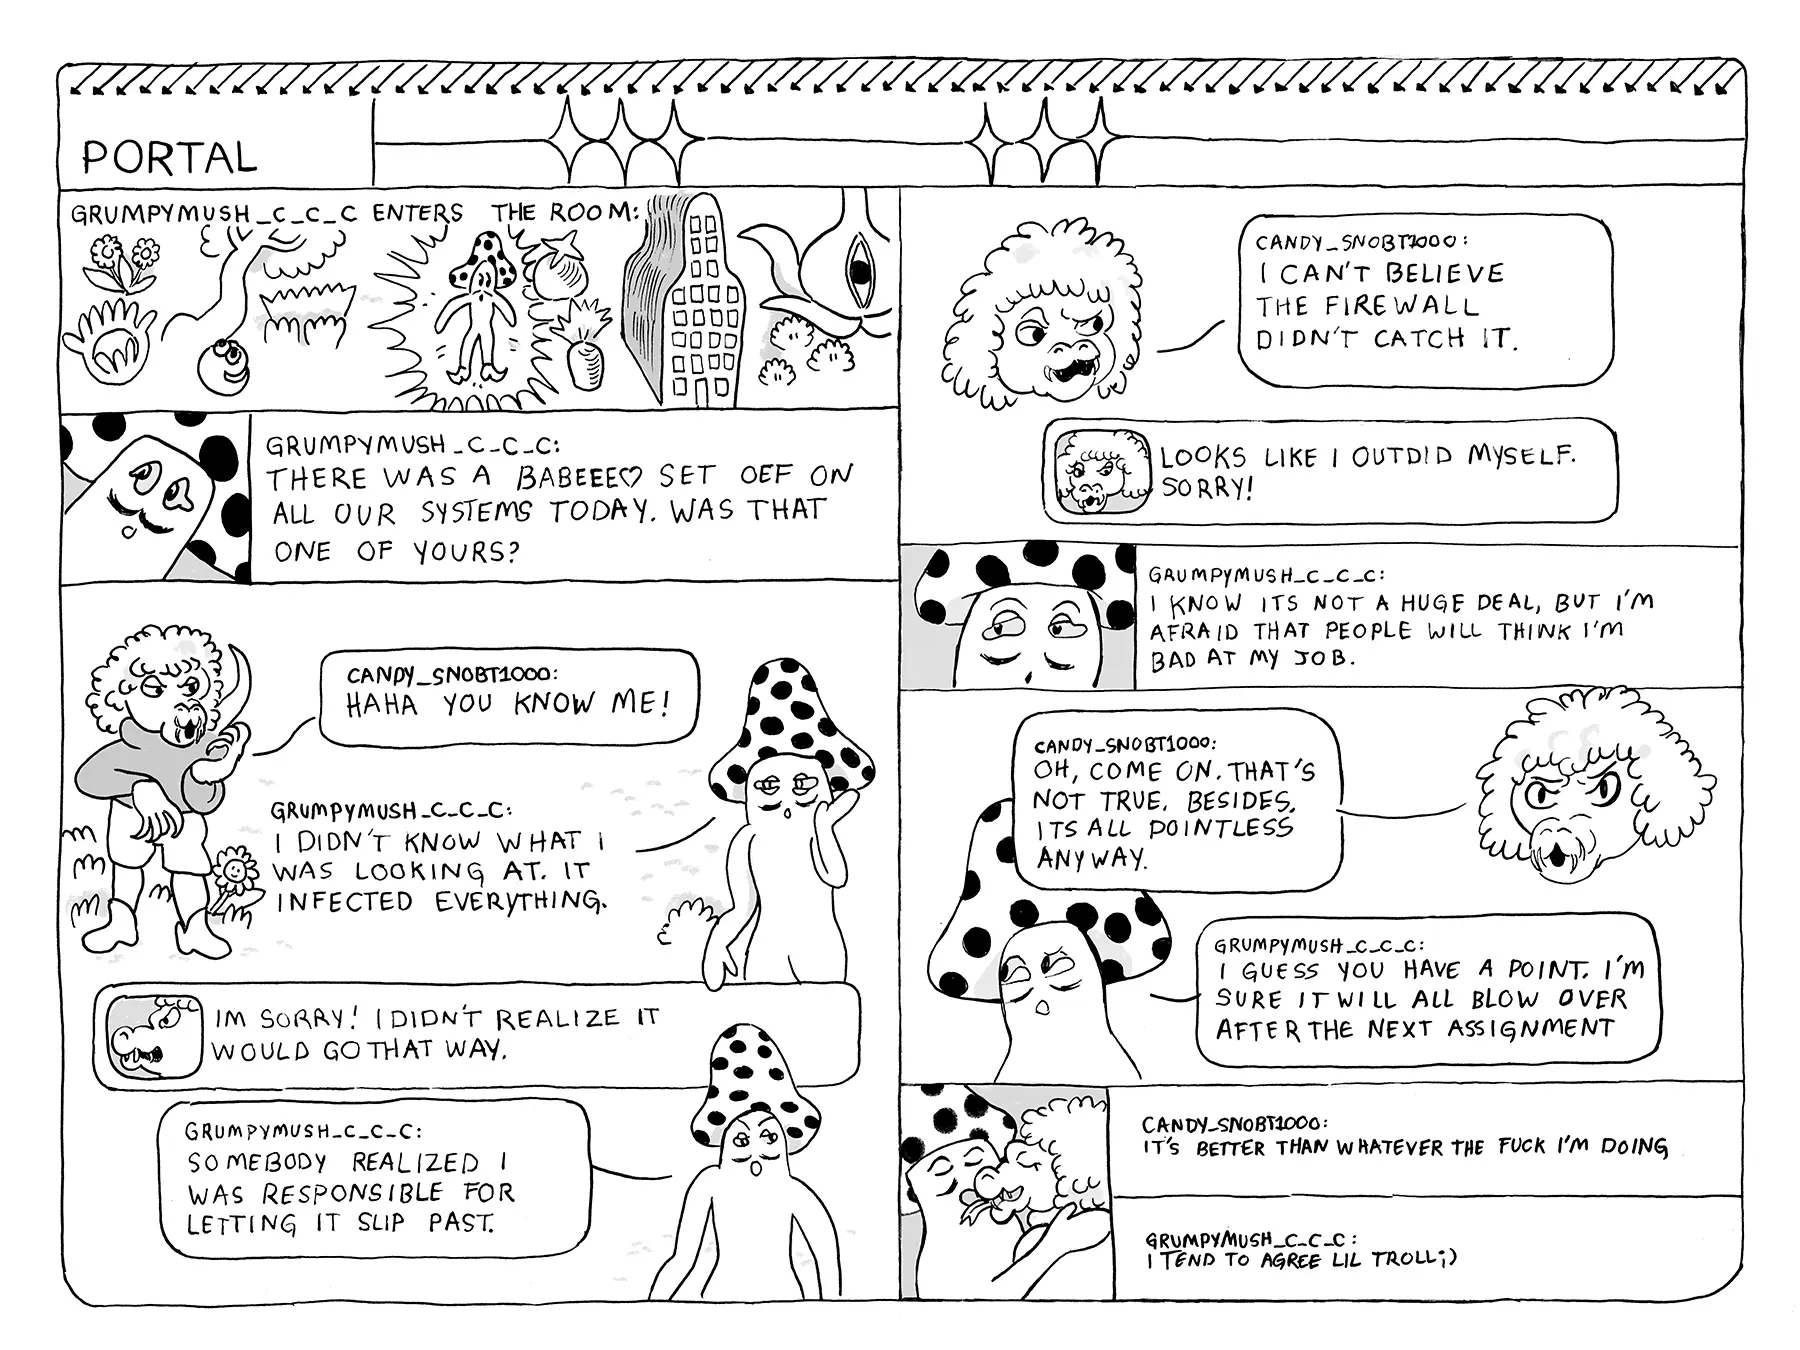 PORTAL
GRUMPYMUSH_C_C_C ENTERS THE ROOM:
GRUMPYMUSH_C_C_C:
THERE WAS A BABEEE♡ SET OFF ON
ALL OUR SYSTEMS TODAY. WAS THAT
ONE OF YOURS?
CANDY_SNOBT1000:
HAHA YOU KNOW ME!
GRUMPYMUSH_C_C_C:
I DIDN'T KNOW WHAT I
WAS LOOKING AT. IT
INFECTED EVERYTHING.
IM SORRY! I DIDN'T REALIZE IT
WOULD GO THAT WAY.
GRUMPYMUSH_C_C_C:
SOMEBODY REALIZED I
WAS RESPONSIBLE FOR
LETTING IT SLIP PAST.
CANDY_SNOBT1000:
I CAN'T BELIEVE
THE FIREWALL
DIDN'T CATCH IT.
LOOKS LIKE I OUTDID MYSELF.
SORRY!
GRUMPYMUSH_C_C_C:
I KNOW ITS NOT A HUGE DEAL, BUT I'M
AFRAID THAT PEOPLE WILL THINK I'M
BAD AT MY JOB.
CANDY_SNOBT1000:
OH, COME ON. THAT'S
NOT TRUE. BESIDES,
ITS ALL POINTLESS
ANYWAY.
GRUMPYMUSH_C_C_C:
I GUESS YOU HAVE A POINT. I'M
SURE IT WILL ALL BLOW OVER
AFTER THE NEXT ASSIGNMENT
CANDY_SNOBT1000:
IT'S BETTER THAN WHATEVER THE FUCK I'M DOING
GRUMPYMUSH_C_C_C:
I TEND TO AGREE LIL TROLL;)